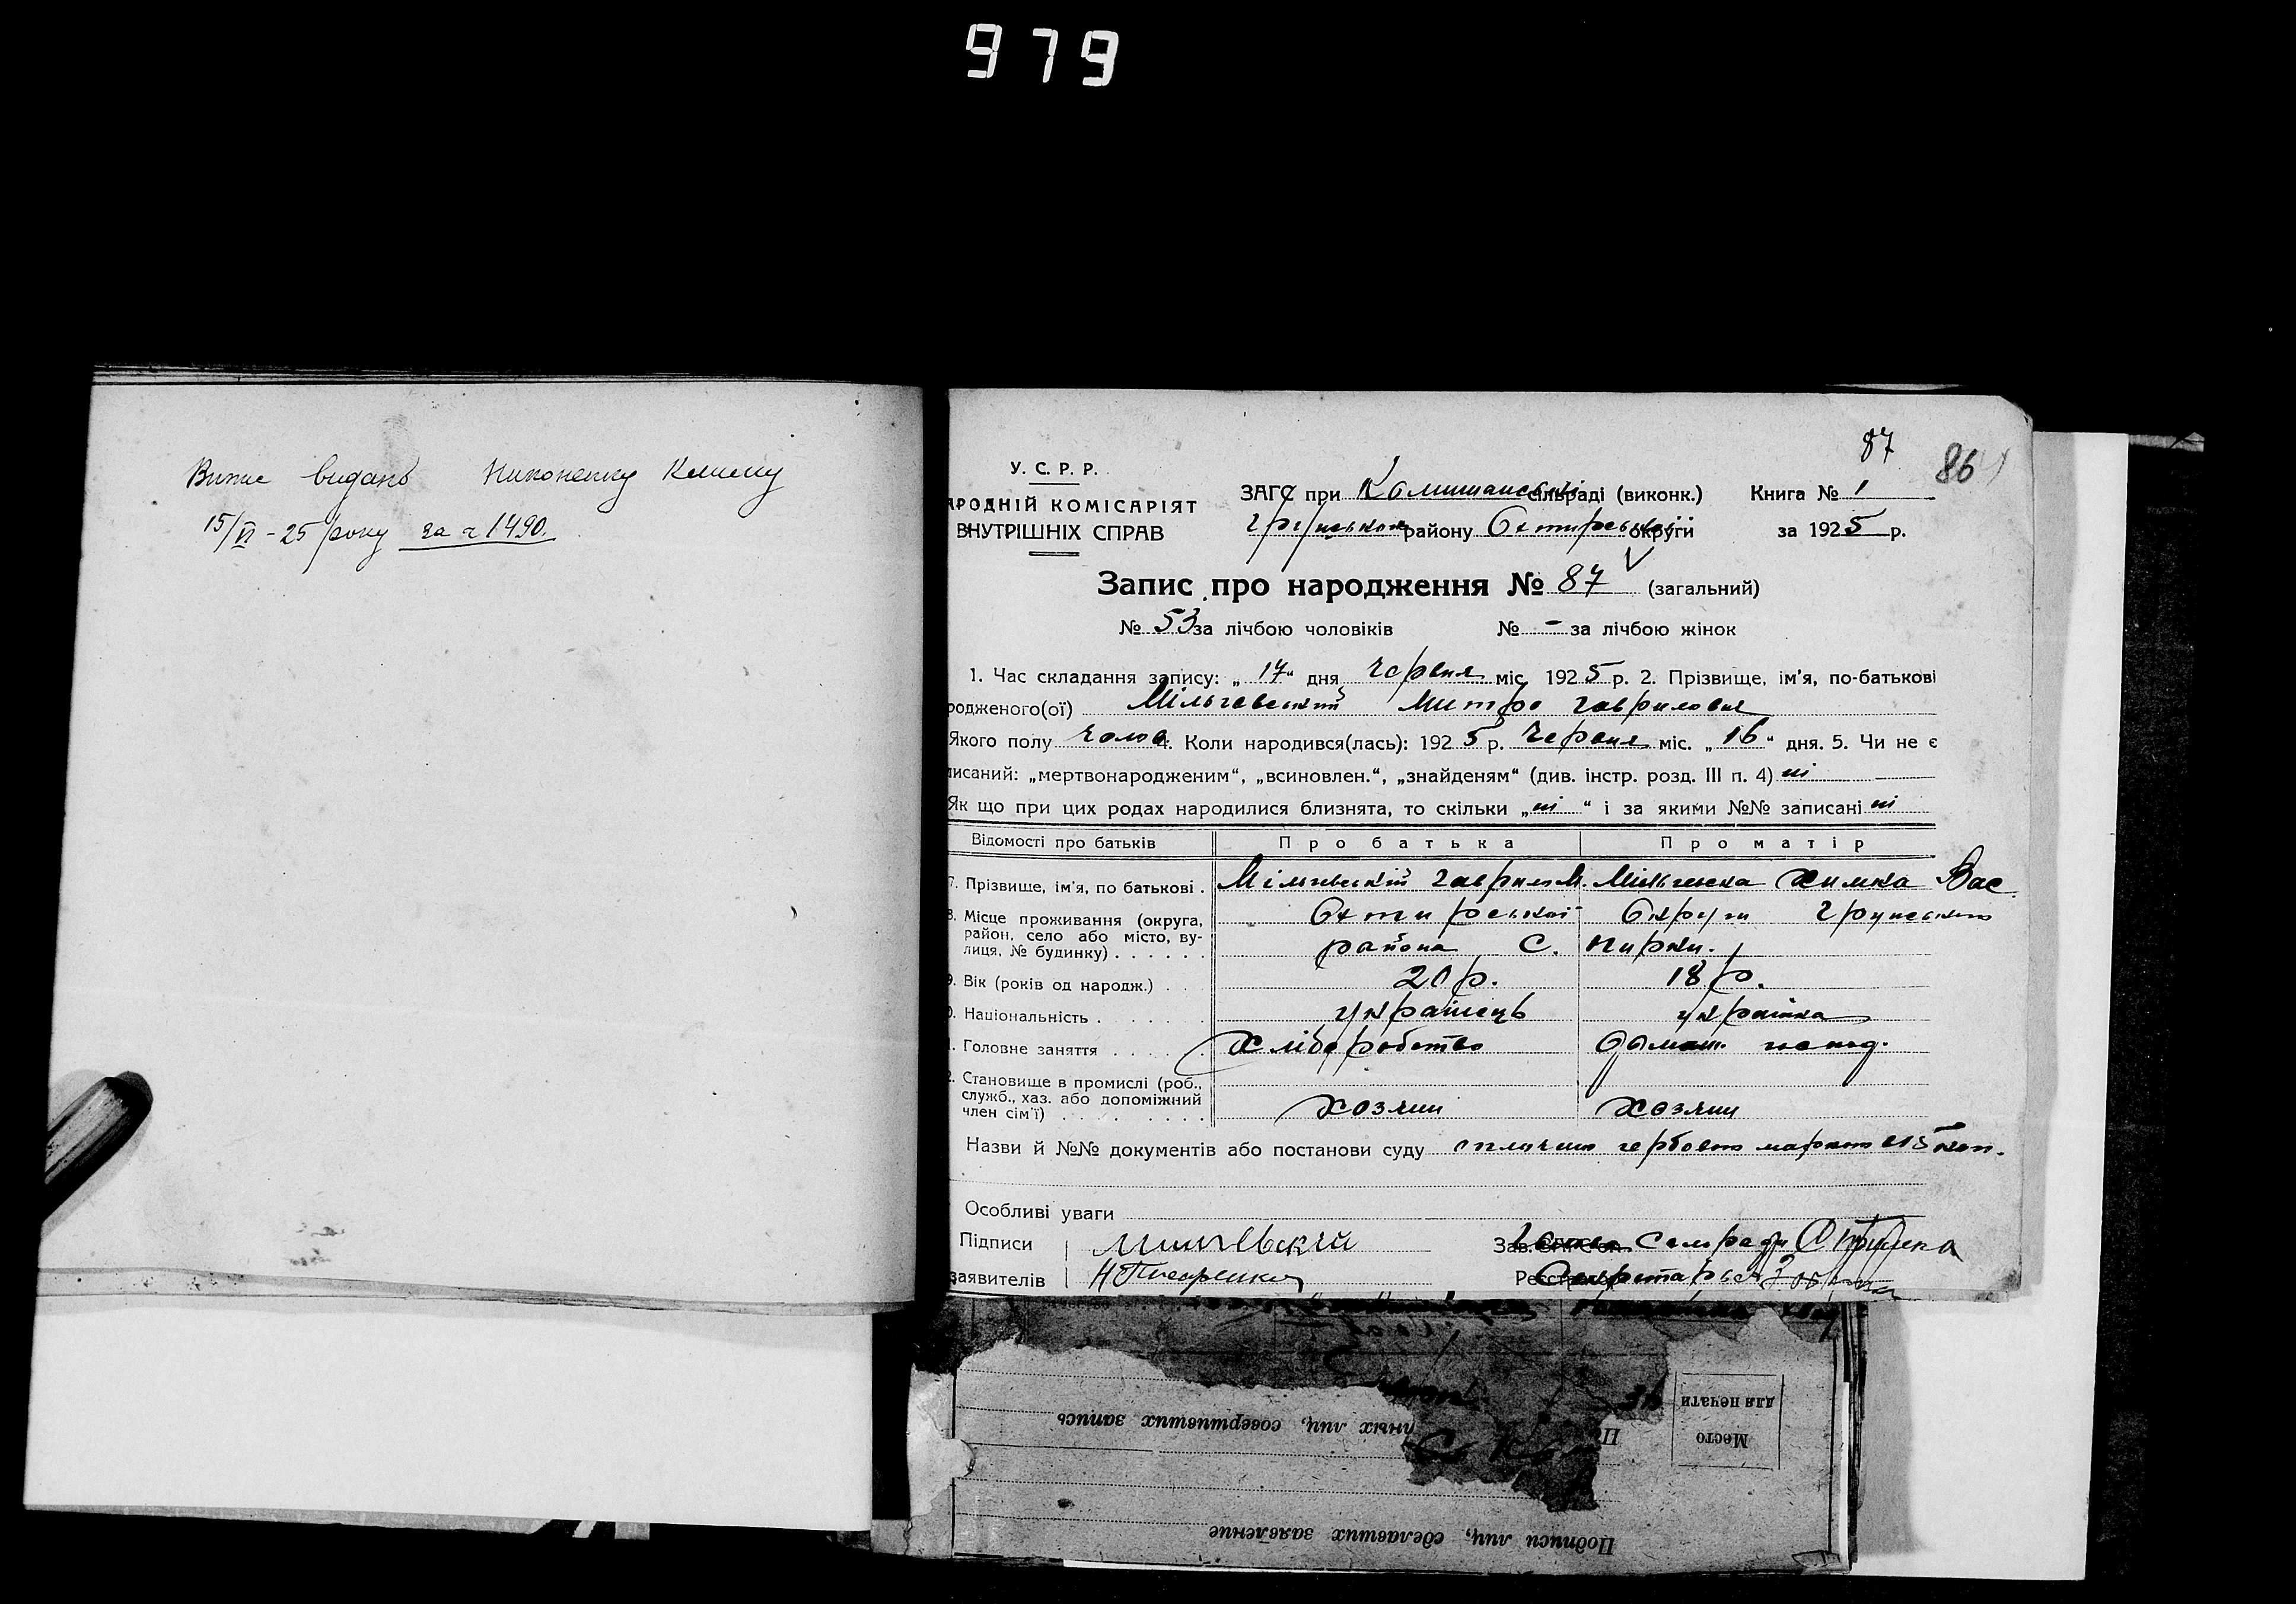 979
Випис видано Никоненку Климу
15/VI - 25 року за № 1490.
87
86
У. С. Р. Р.
АРОДНІЙ КОМІСАРІЯТ
ВНУТРІШНІХ СПРАВ
ЗАГС при Комишанській сільраді (виконк.) Книга № 1
Грунського району Охтирської округи за 1925 р.
Запис про народження № 87 (загальний)
№ 53 за лічбою чоловіків № - за лічбою жінок
1. Час складання запису: „17“ дня червня міс. 1925 р. 2. Прізвище, ім'я, по-батькові
родженого(ої) Мільгевський Митро Гаврилович
Якого полу чолов. 4. Коли народився(лась): 1925 р. Червня міс. „16“ дня. 5. Чи не є
писаний: „мертвонародженим“, „всиновлен.“, „знайденям“ (див. інстр. розд. III п. 4) ні
Як що при цих родах народилися близнята, то скільки „ні“ і за якими №№ записані ні
Відомості про батьків Про батька Про матір
7. Прізвище, ім'я, по батькові . Гаврило М. Химка Вас
8. Місце проживання (округа, район, село або місто, вулиця, № будинку) . . . . . . Охтирської Округи Грунського
района С. Пирки.
9. Вік (років од народж.) . . 20 р. 18 р.
0. Національність . . . . . українець українка
1. Головне заняття . . . . . Хліборобство Домаш. господ.
2. Становище в промислі (роб., служб., хаз. або допоміжний член сім'ї) . . . . . . . . . хозяин хозяин
Назви й №№ документів або постанови суду оплачено гербовою маркою 15 коп.
Особливі уваги
Підписи
заявителів Н Писаренко
Голова Сельради
Секретарь
Место
для печати
нных лиц, совершивших запись
Подписи лиц, сделавших заявление